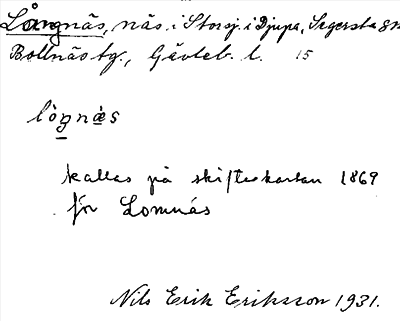 Långnäs, näs i Storsj. i Djupa, Segersta sn
Bollnäs tg., Gävleb. l. 15
lògnǽs
kallas på skifteskartan 1869
för Lomnäs
Nils Erik Eriksson 1931.